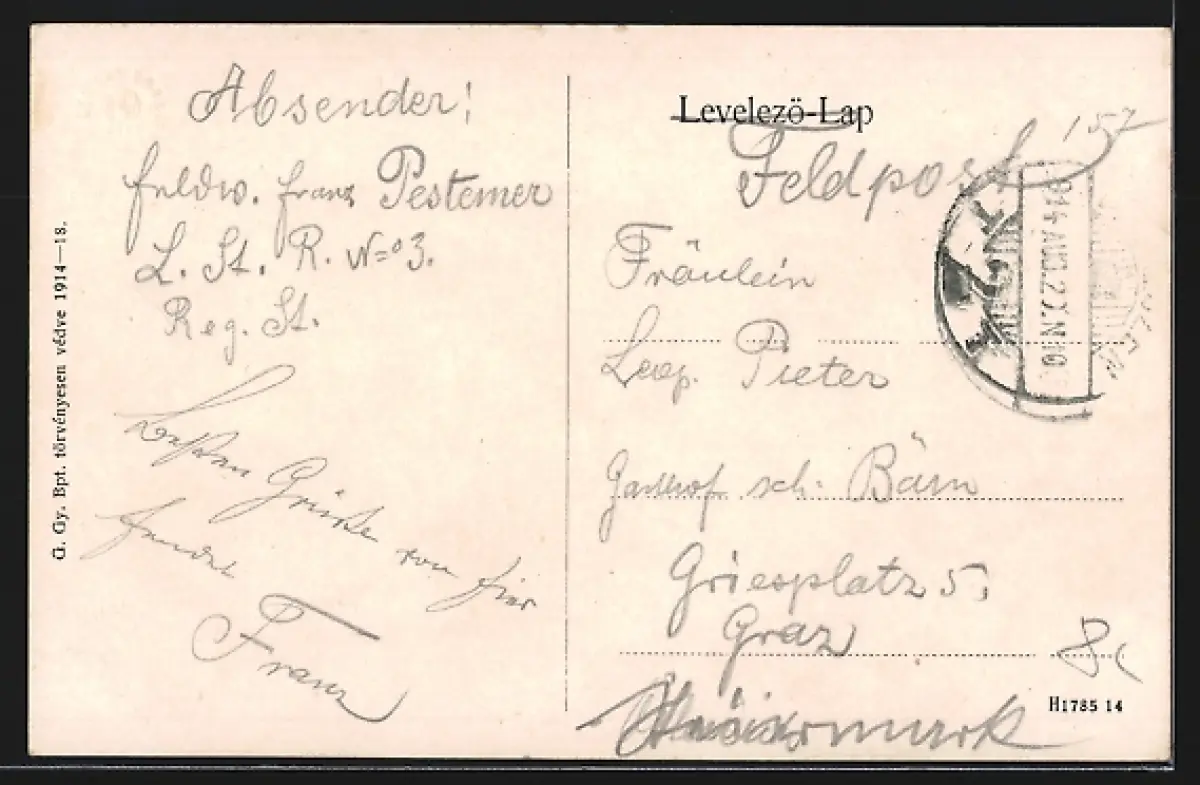 G. Gy. Bpt. törvényesen védve 1914—18.
Absender:
Feldw. Franz Pestemer
L. St. R. No 3.
Reg. St.
Besten Grüße von hier
sendet
Franz
Levelezö-Lap
Feldpost 157
Fräulein
Leop. Pieter
Gasthof sch. Bärn
Griesplatz 5.
Graz
Steiermark
914 AUG.27.N10
H1785 14